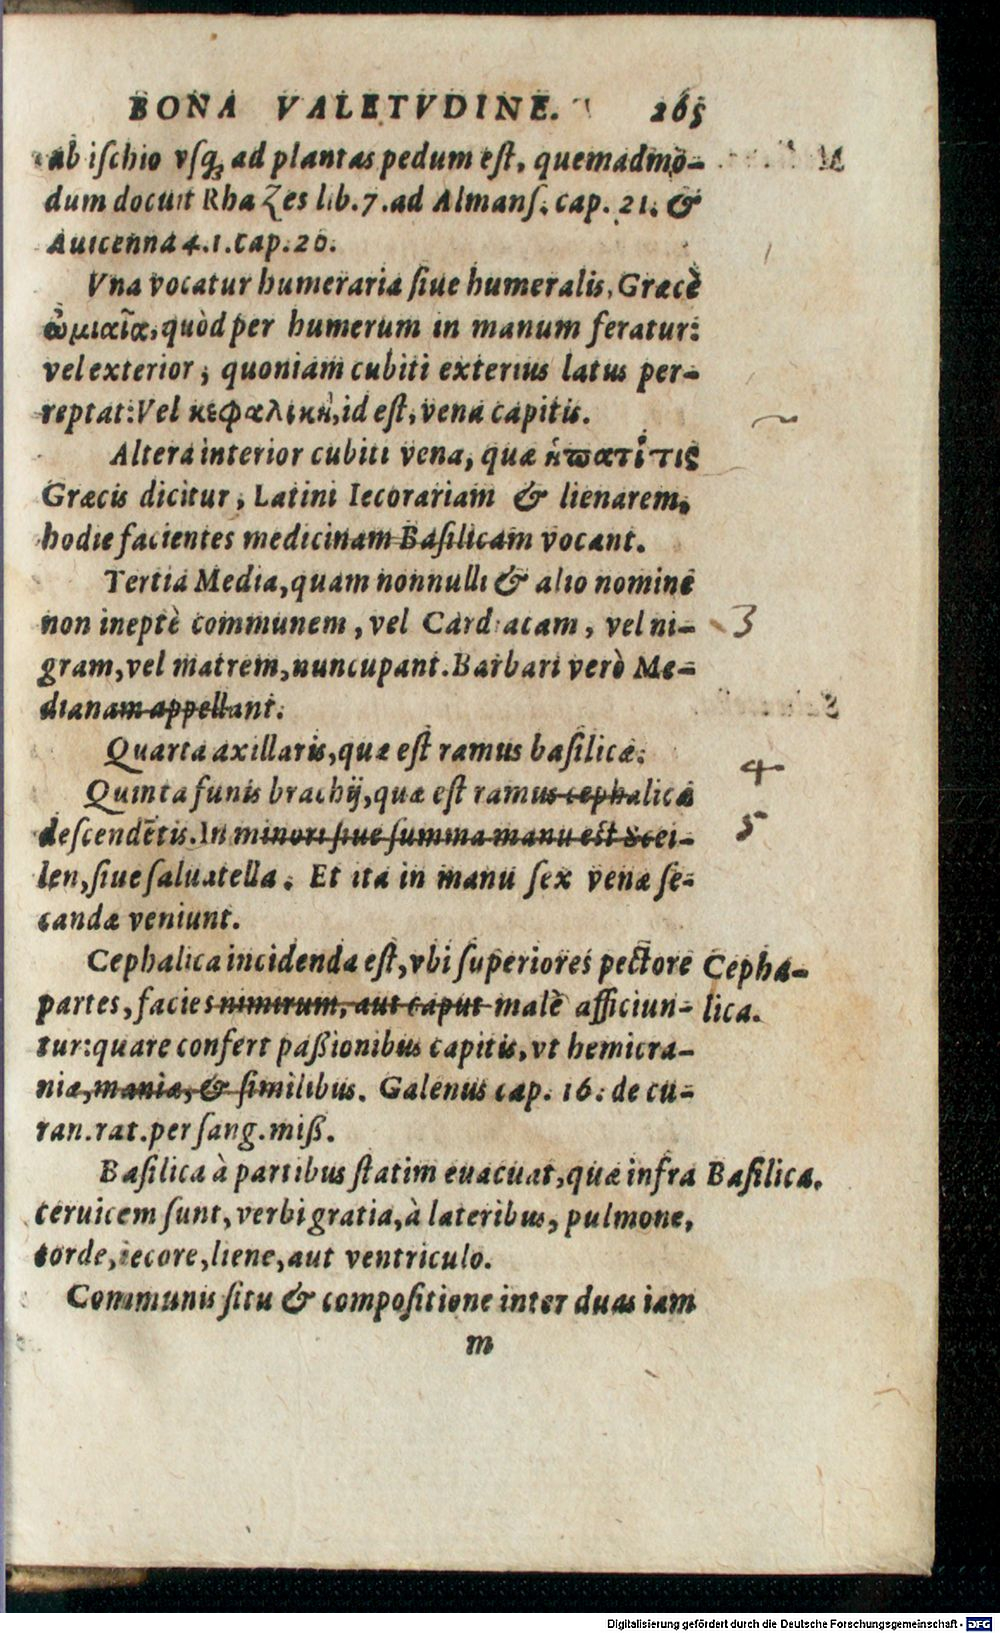 BONA VALETVDINE. 265
ab iſchio vſq; ad plantas pedum eſt, quemadmo-
dum docuit Rhazes lib. 7. ad Almanſ. cap. 21. &
Auicenna 4.1. cap. 20.
Vna vocatur humeraria ſiue humeralis, Græcè
ὠμιαῖα, quòd per humerum in manum feratur:
vel exterior, quoniam cubiti exterius latus per-
reptat: Vel κεφαλικὴ, id eſt, vena capitis.
Altera interior cubiti vena, quæ ἡπατῖτις
Græcis dicitur, Latini Iecorariam & lienarem,
hodie facientes medicinam Baſilicam vocant.
Tertia Media, quam nonnulli & alio nomine
non ineptè communem, vel Cardiacam, vel ni-
3
gram, vel matrem, nuncupant. Barbari verò Me-
dianam appellant.
Quarta axillaris, quæ eſt ramus baſilicæ.
4
Quinta funis brachij, quæ eſt ramus cephalicæ
5
deſcendētis. In minori ſiue ſumma manu est Scei-
len, ſiue ſaluatella. Et ita in manu ſex venæ ſe-
candæ veniunt.
Cephalica incidenda eſt, vbi ſuperiores pectore
Cepha-
partes, facies nimirum, aut caput malè afficiun-
lica.
tur: quare confert paßionibus capitis, vt hemicra-
niæ, maniæ, & ſimilibus. Galenus cap. 16. de cu-
ran. rat. per ſang. miß.
Baſilica à partibus ſtatim euacuat, quæ infra
Baſilica.
ceruicem ſunt, verbi gratia, à lateribus, pulmone,
corde, iecore, liene, aut ventriculo.
Communis ſitu & compoſitione inter duas iam
m
Digitalisierung gefördert durch die Deutsche Forschungsgemeinschaft - DFG